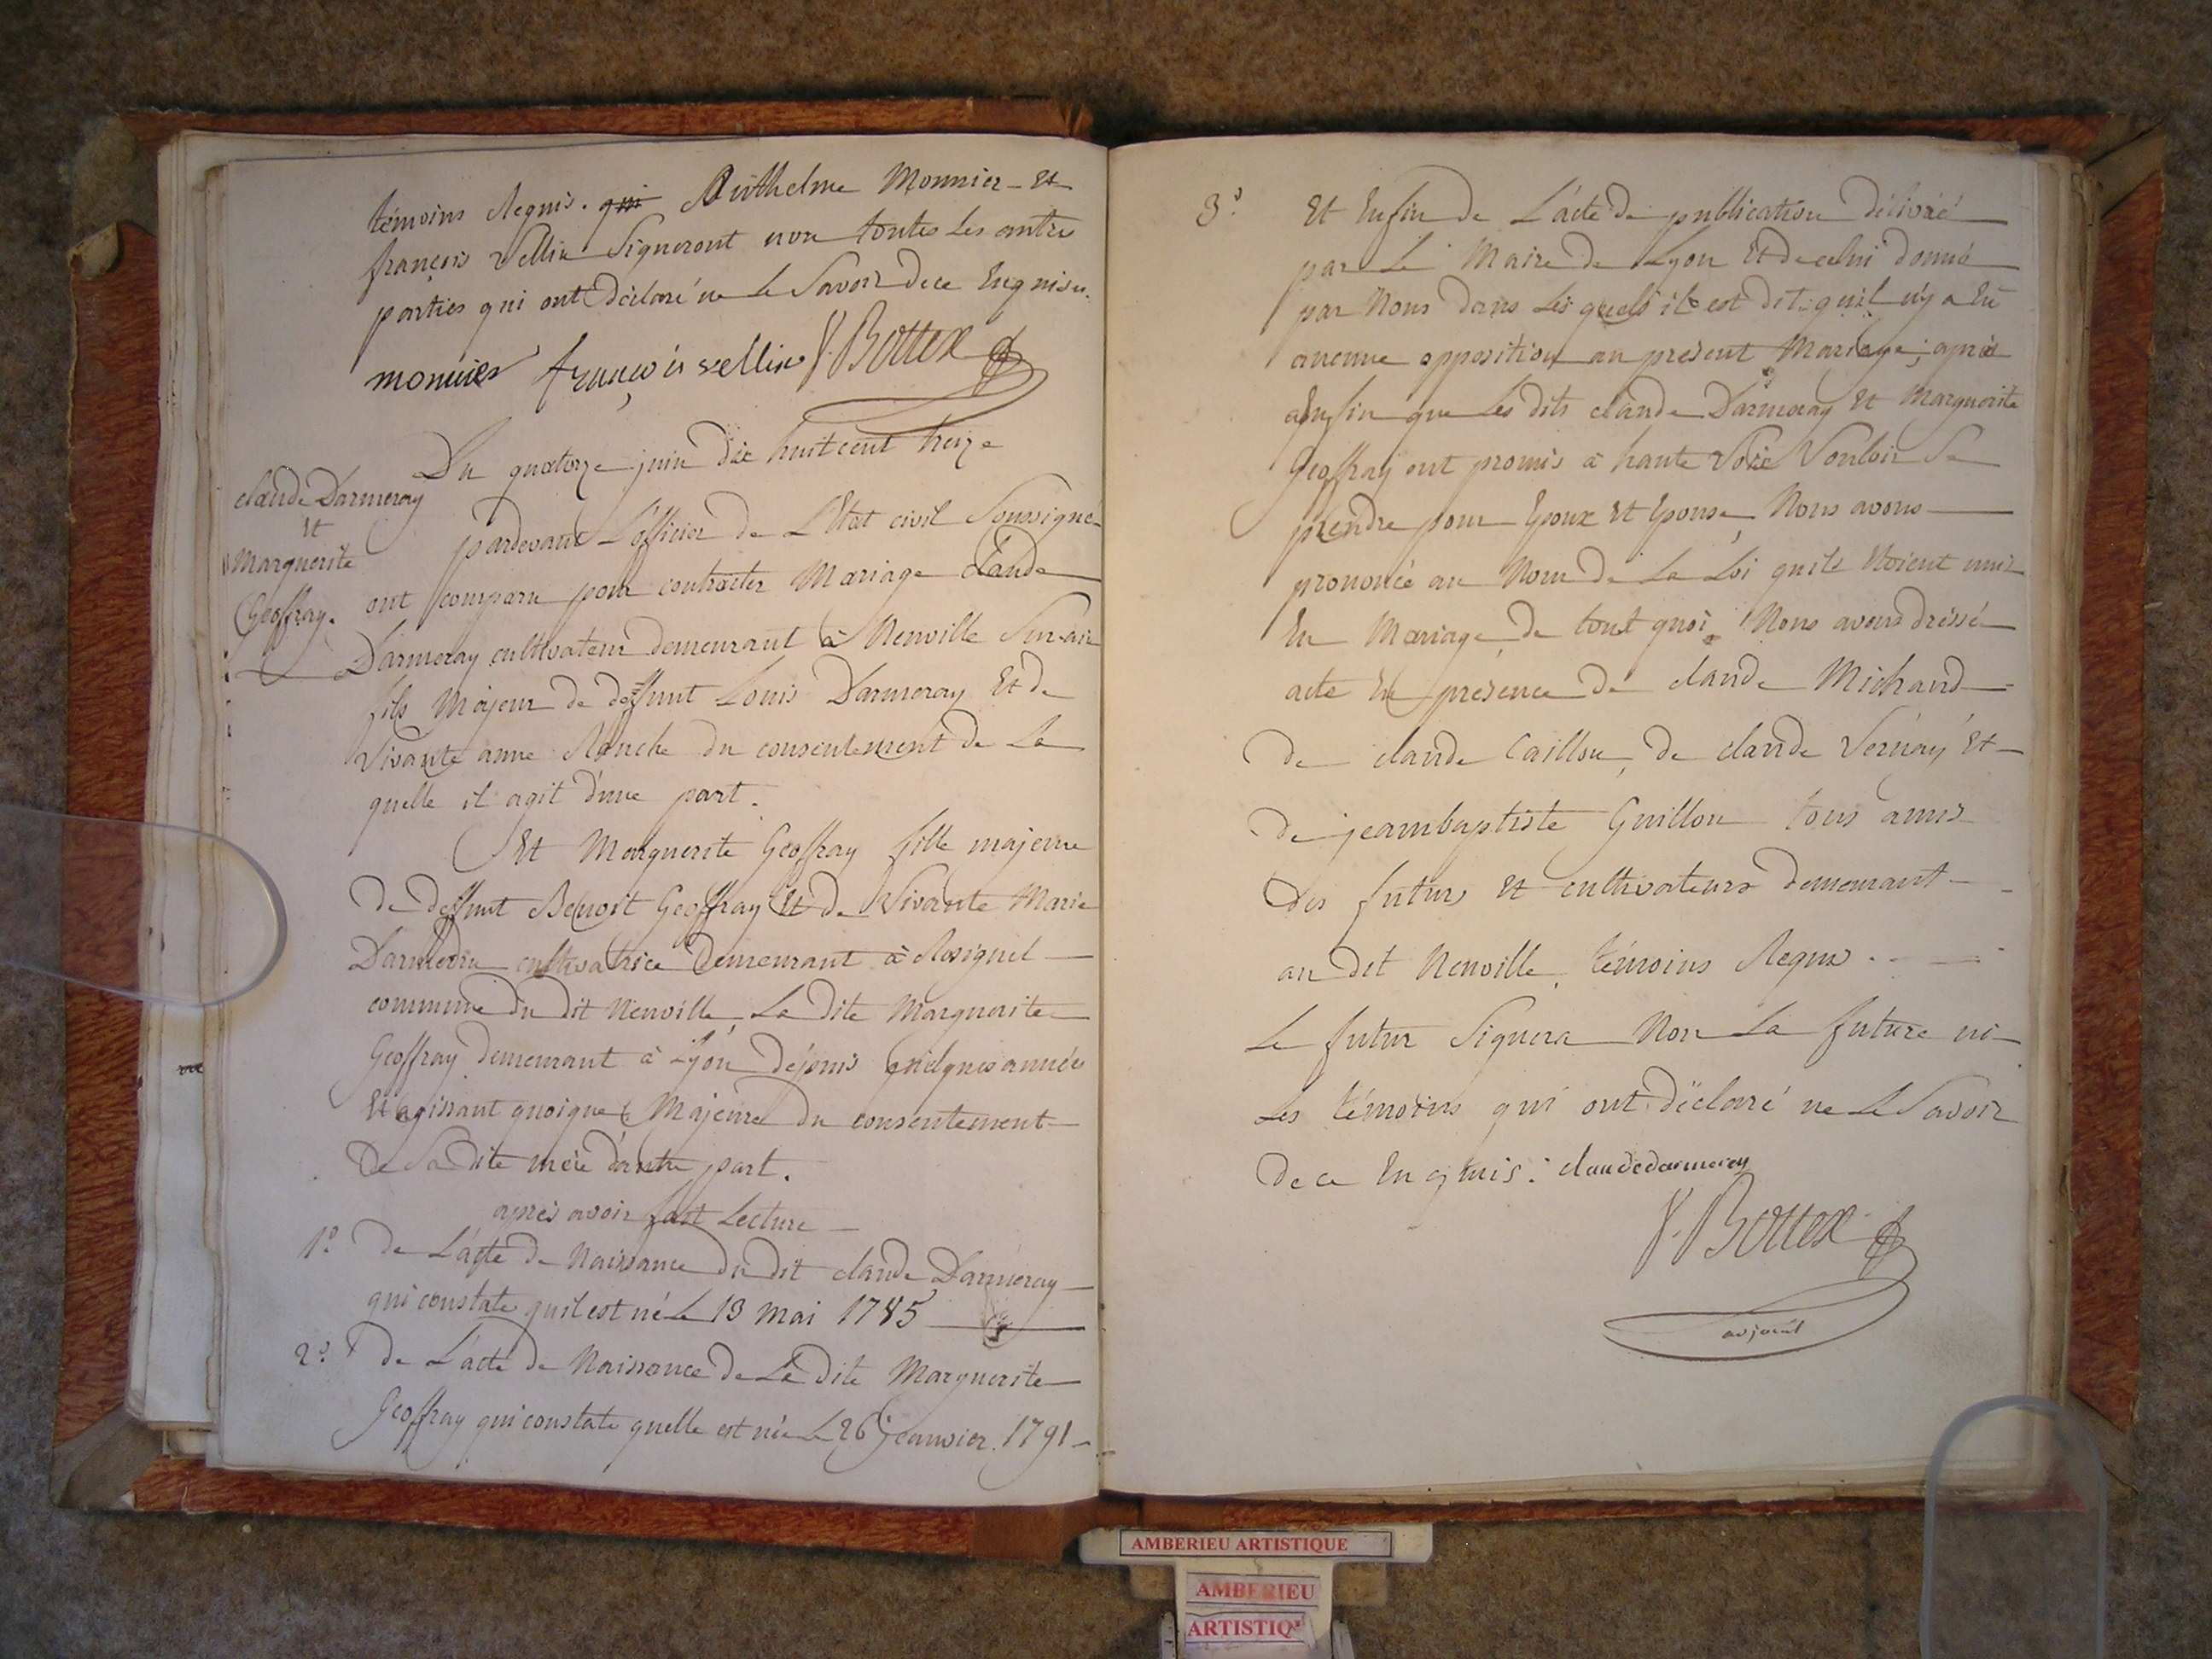 témoins Requis. qui Anthelme Monnier Et
françois Vellin Signeront non toutes Les autres
parties qui ont Déclaré ne Le Savoir de ce Enquises.
monnier françois vellin J. Bottex
Du quatorze juin dix huit cent treize
claude Darmeray
Et
Marguerite
Geoffray.
pardevant L'officier de L'Etat civil Soussigné
ont comparu pour contracter Mariage claude
Darmeray cultivateur demeurant à Neuville Sur ain
fils Majeur de deffunt Louis Darmeray Et de
Vivante anne du consentement de La
quelle il agit d'une part.
Et Marguerite Geoffray fille majeure
de deffunt Benoit Geoffray Et de Vivante Marie
cultivatrice Demeurant à Rosignel
commune du dit Neuville, La dite Marguerite
Geoffray demeurant à Lyon depuis quelques années
Et agissant quoique Majeure du consentement
de Sa dite mère d'autre part.
après avoir fait Lecture
1º De L'acte de Naissance du dit claude Darmeray
qui constate qu'il est né Le 13 mai 1785
2º de L'acte de Naissance de La dite Marguerite
Geoffray qui constate quelle est née Le 26 janvier. 1791
3º Et Enfin de L'acte de publication délivré
par Le Maire de Lyon Et de celui donné
par Nous dans Lesquels il est dit qu'il n'y a Eu
aucune opposition au présent Mariage; après
Enfin que Les dits claude Darmeray Et Marguerite
Geoffray ont promis à haute Voix Vouloir Se
prendre pour Epoux Et Epouse, Nous avons
prononcé au Nom de La Loi quils Etoient unis
En Mariage, de tout quoi Nous avons dressé
acte En présence de claude Michaud
de claude Caillou, de claude Vernay Et
de jeanbaptiste Guillon tous amis
des futurs Et cultivateurs demeurant
au dit Neuville, témoins Requis.
Le futur Signera Non La future ni
Les témoins qui ont déclaré ne Le Savoir
de ce Enquis. claude darmeray
J. Bottex
adjoint
AMBERIEU ARTISTIQUE
AMBERIEU
ARTISTIQ